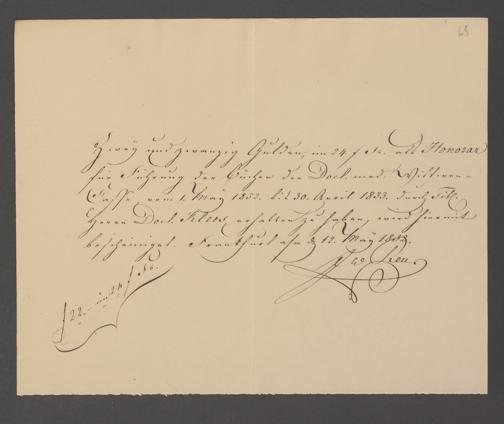 63
Zwey und zwanzig Gulden, im 24 f Fs. als Honorar
für Führung der Bücher der Doct. med. Wittwen-
Casse, vom 1. May 1832. bis 30. April 1833. durch Titl.
Herrn Doct. Kloss, erhalten zu haben, wird hiermit
bescheiniget. Frankfurt a/m d. 12. May 1833.
f 22. im 24 f Fs.